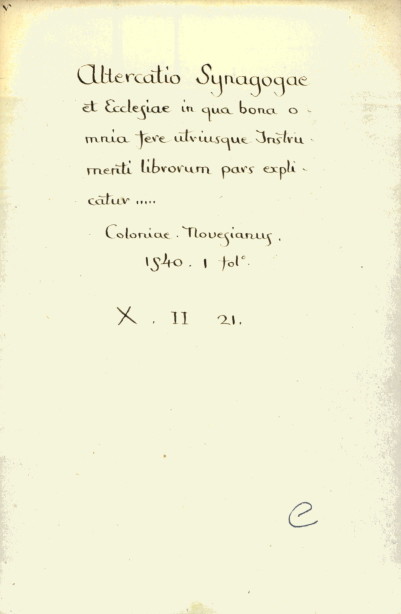 Altercatio Synagogae
et Ecclesiae in qua bona o-
mnia fere utriusque Instru-
menti librorum pars expli-
catur .....
Coloniae. Novesianus.
1540. 1 folº.
X. II 21.
e